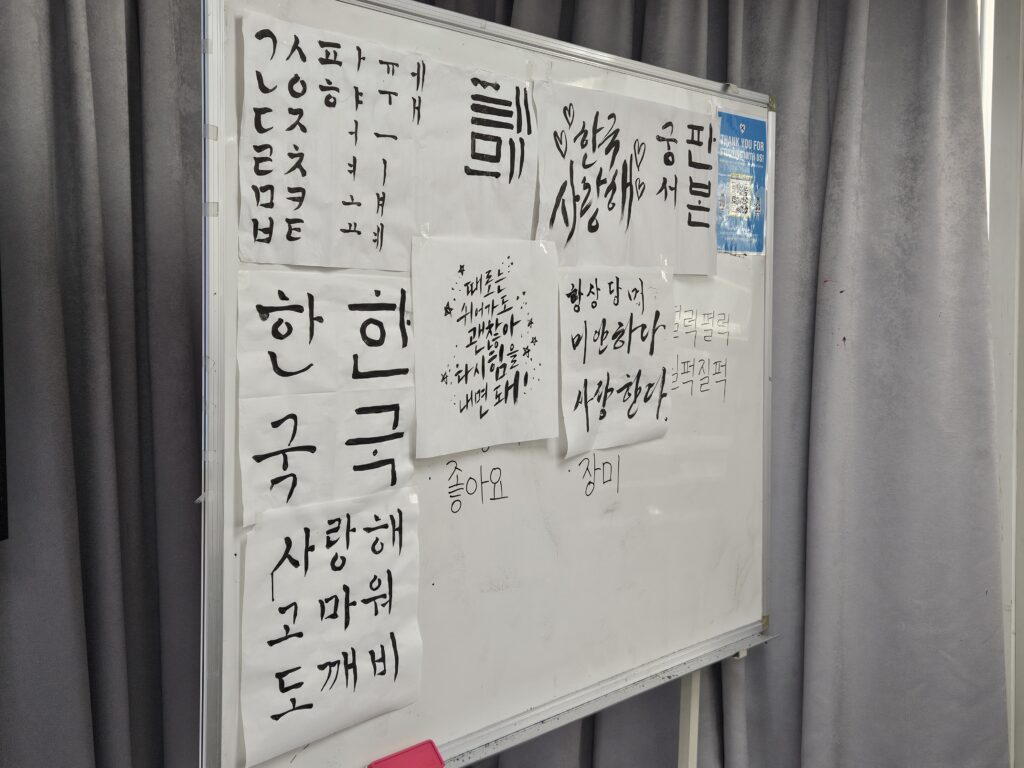 ㄱ ㅅ ㅍ ㅏ ㅠ ㅔ
ㄴ ㅇ ㅎ ㅑ ㅜ ㅐ
ㄷ ㅈ ㅓ ㅡ
ㄹ ㅊ ㅕ ㅣ
ㅁ ㅋ ㅗ ㅒ
ㅂ ㅌ ㅛ ㅖ
한국
사랑해
궁서
판본
THANK YOU FOR
WITH US!
한 한
국 국
때로는
쉬어가도
괜찮아
다시 힘을
내면 돼!
항상
미안하다
사랑한다.
럭펄럭
퍽질퍽
좋아요
장미
사랑해
고마워
도깨비